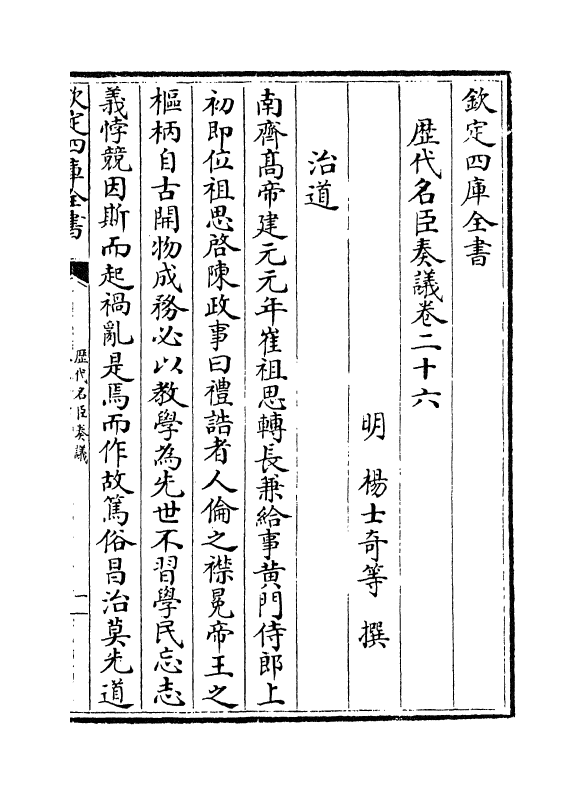 欽定四庫全書
歴代名臣奏議卷二十六
明 楊士奇等 撰
治道
南齊髙帝建元元年崔祖思轉長兼給事黄門侍郎上
初即位祖思啓陳政事曰禮誥者人倫之襟冕帝王之
樞柄自古開物成務必以教學為先世不習學民忘志
義悖競因斯而起禍亂是焉而作故篤俗昌治莫先道
欽定四庫全書
歴代名臣奏議
一